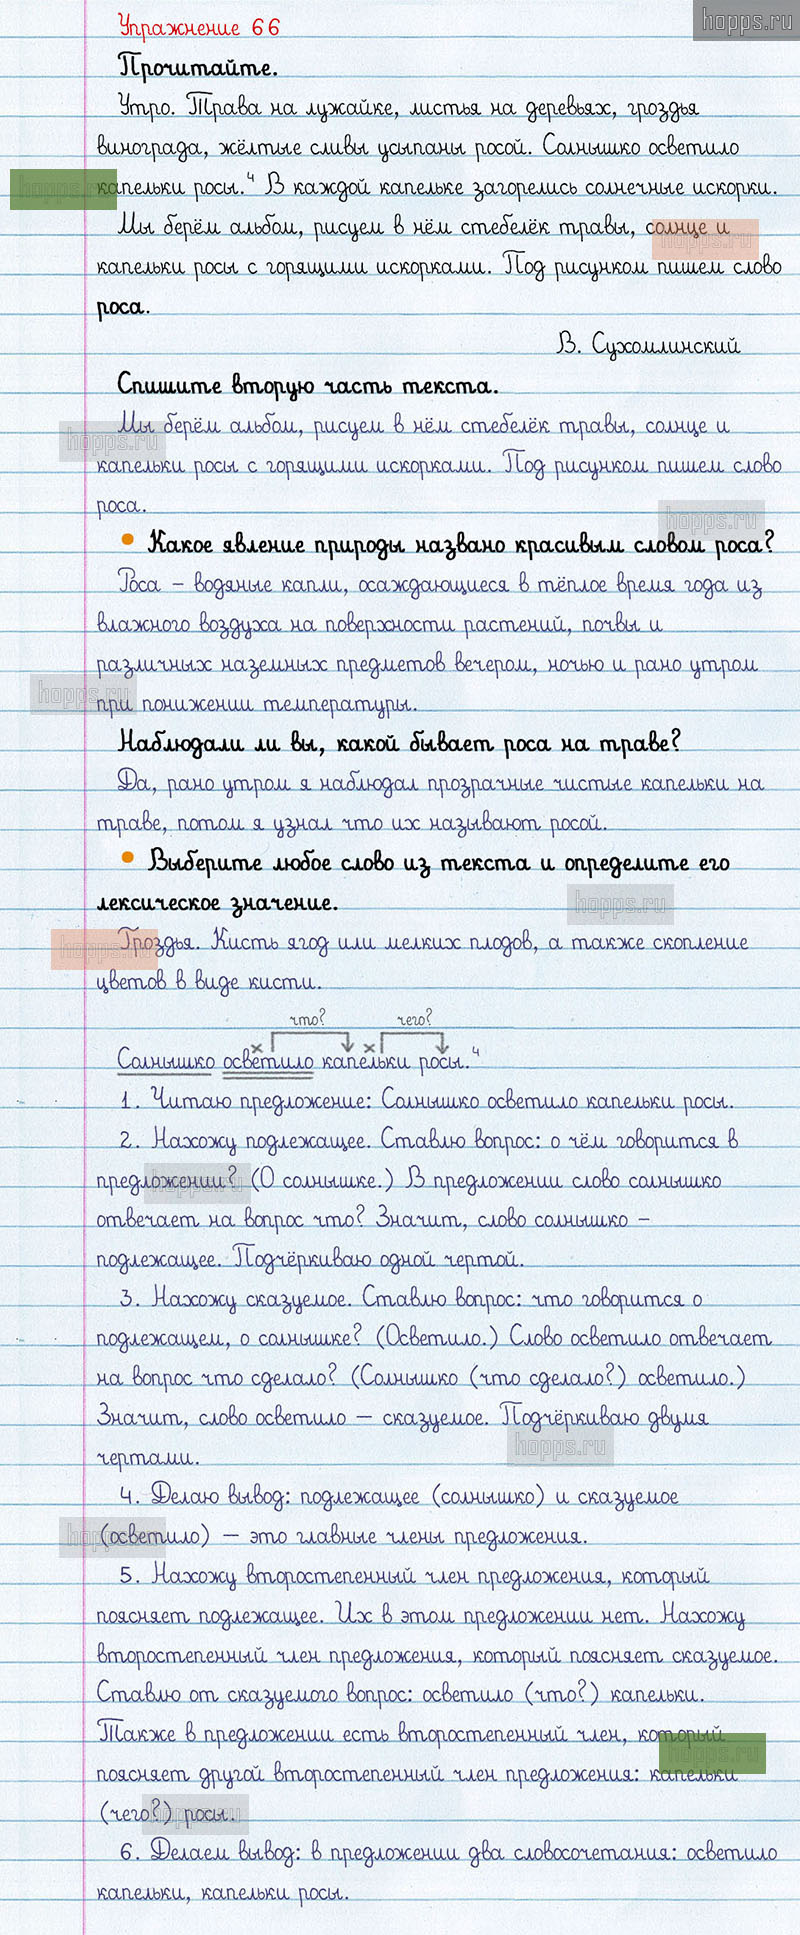 hopps.ru
Упражнение 66
Прочитайте.
Утро. Трава на лужайке, листья на деревьях, гроздья
винограда, жёлтые сливы усыпаны росой. Солнышко осветило
капельки росы.⁴ В каждой капельке загорелись солнечные искорки.
Мы берём альбом, рисуем в нём стебелёк травы, солнце и
капельки росы с горящими искорками. Под рисунком пишем слово
роса.
В. Сухомлинский
Спишите вторую часть текста.
Мы берём альбом, рисуем в нём стебелёк травы, солнце и
капельки росы с горящими искорками. Под рисунком пишем слово
роса.
• Какое явление природы названо красивым словом роса?
Роса – водяные капли, осаждающиеся в тёплое время года из
влажного воздуха на поверхности растений, почвы и
различных наземных предметов вечером, ночью и рано утром
при понижении температуры.
Наблюдали ли вы, какой бывает роса на траве?
Да, рано утром я наблюдал прозрачные чистые капельки на
траве, потом я узнал что их называют росой.
• Выберите любое слово из текста и определите его
лексическое значение.
Гроздья. Кисть ягод или мелких плодов, а также скопление
цветов в виде кисти.
что? чего?
х х
Солнышко осветило капельки росы.⁴
1. Читаю предложение: Солнышко осветило капельки росы.
2. Нахожу подлежащее. Ставлю вопрос: о чём говорится в
предложении? (О солнышке.) В предложении слово солнышко
отвечает на вопрос что? Значит, слово солнышко –
подлежащее. Подчёркиваю одной чертой.
3. Нахожу сказуемое. Ставлю вопрос: что говорится о
подлежащем, о солнышке? (Осветило.) Слово осветило отвечает
на вопрос что сделало? (Солнышко (что сделало?) осветило.)
Значит, слово осветило – сказуемое. Подчёркиваю двумя
чертами.
4. Делаю вывод: подлежащее (солнышко) и сказуемое
(осветило) – это главные члены предложения.
5. Нахожу второстепенный член предложения, который
поясняет подлежащее. Их в этом предложении нет. Нахожу
второстепенный член предложения, который поясняет сказуемое.
Ставлю от сказуемого вопрос: осветило (что?) капельки.
Также в предложении есть второстепенный член, который
поясняет другой второстепенный член предложения: капельки
(чего?) росы.
6. Делаем вывод: в предложении два словосочетания: осветило
капельки, капельки росы.